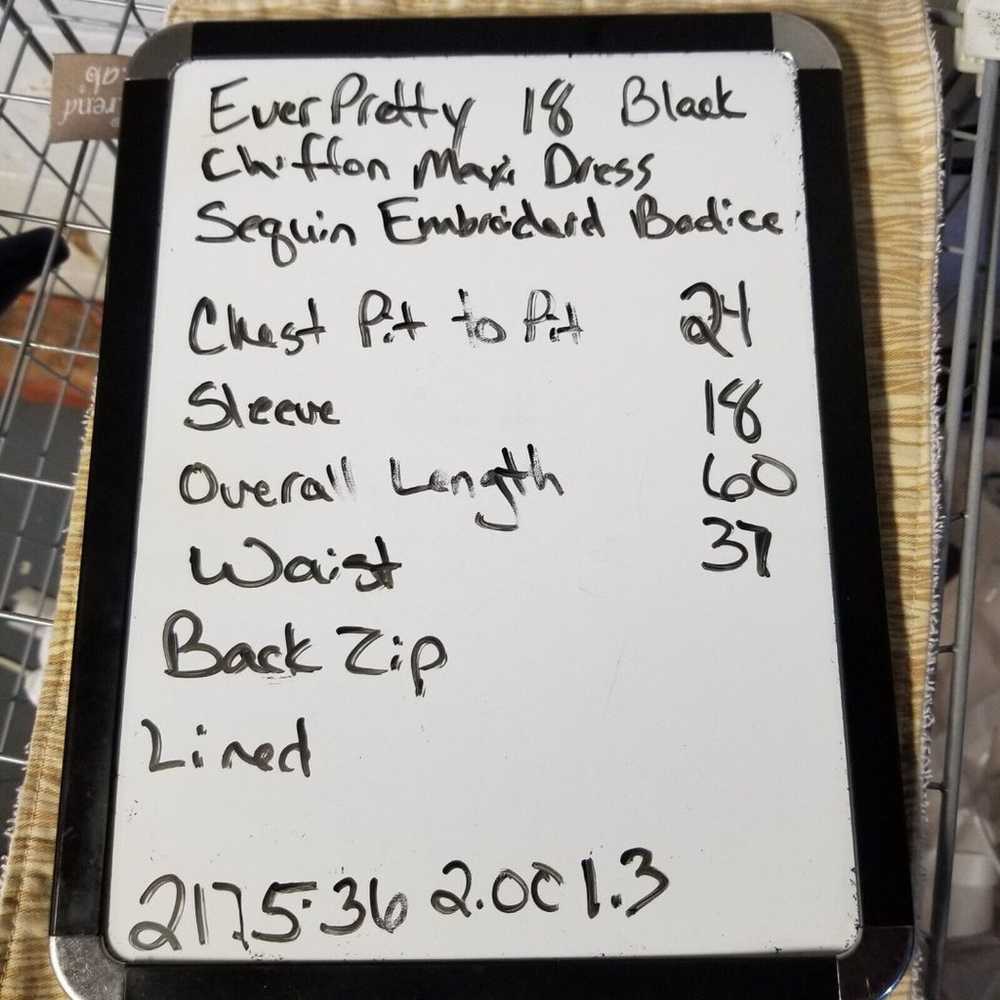 Trend
Lab
EverPretty 18 Black
Chiffon Maxi Dress
Sequin Embroiderd Bodice
Chest Pit to Pit 24
Sleeve 18
Overall Length 60
Waist 37
Back Zip
Lined
2175.36 2.0C 1.3